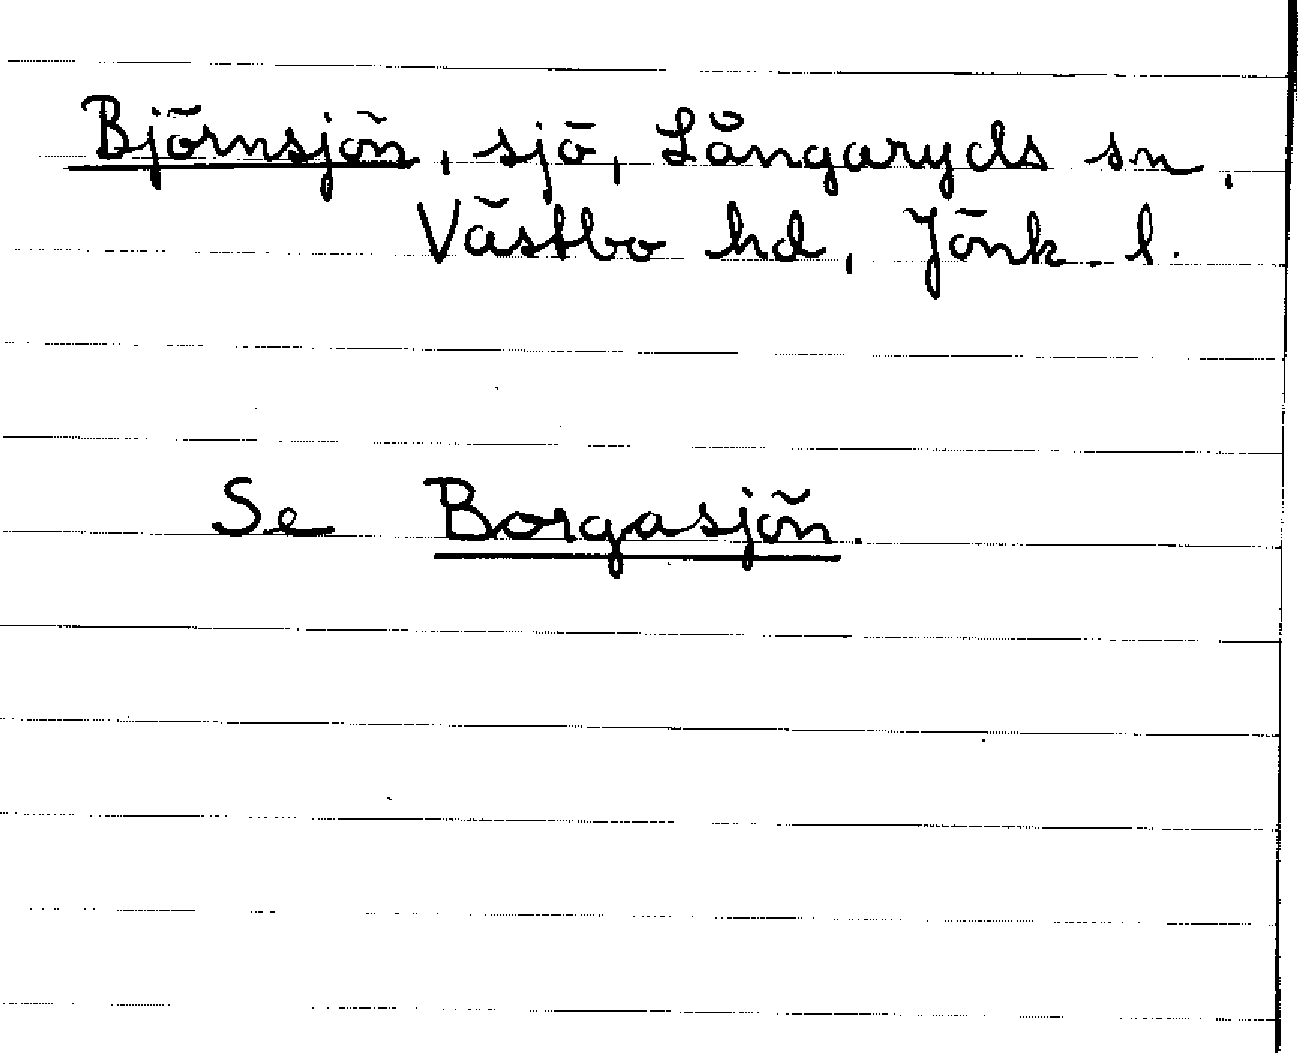 Björnsjön, sjö, Långaryds sn,
Västbo hd, Jönk. l.
Se Borgasjön.